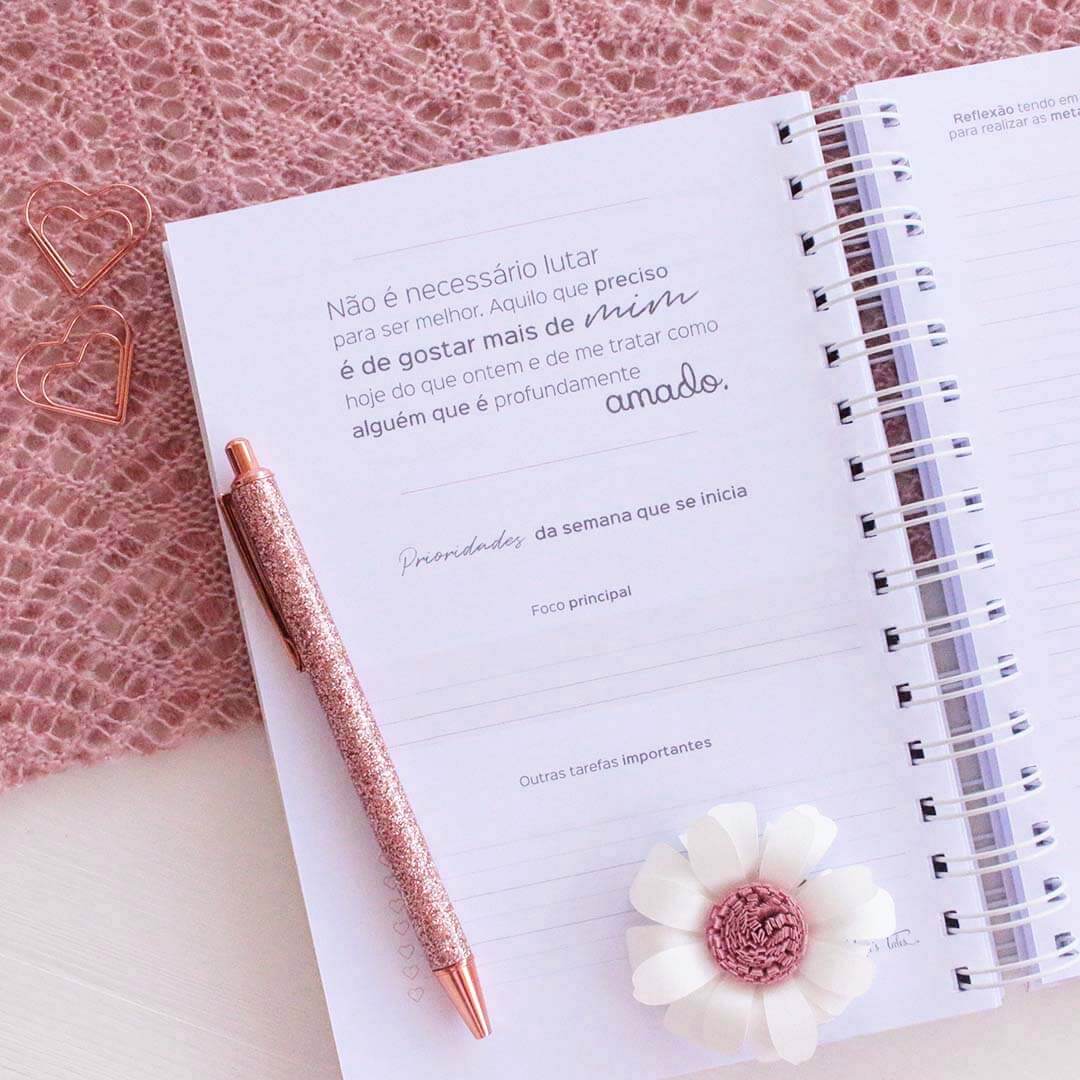 Não é necessário lutar
para ser melhor. Aquilo que preciso
é de gostar mais de mim
hoje do que ontem e de me tratar como
alguém que é profundamente
amado.
Prioridades da semana que se inicia
Foco principal
Outras tarefas importantes
Tales
Reflexão tendo em
para realizar as